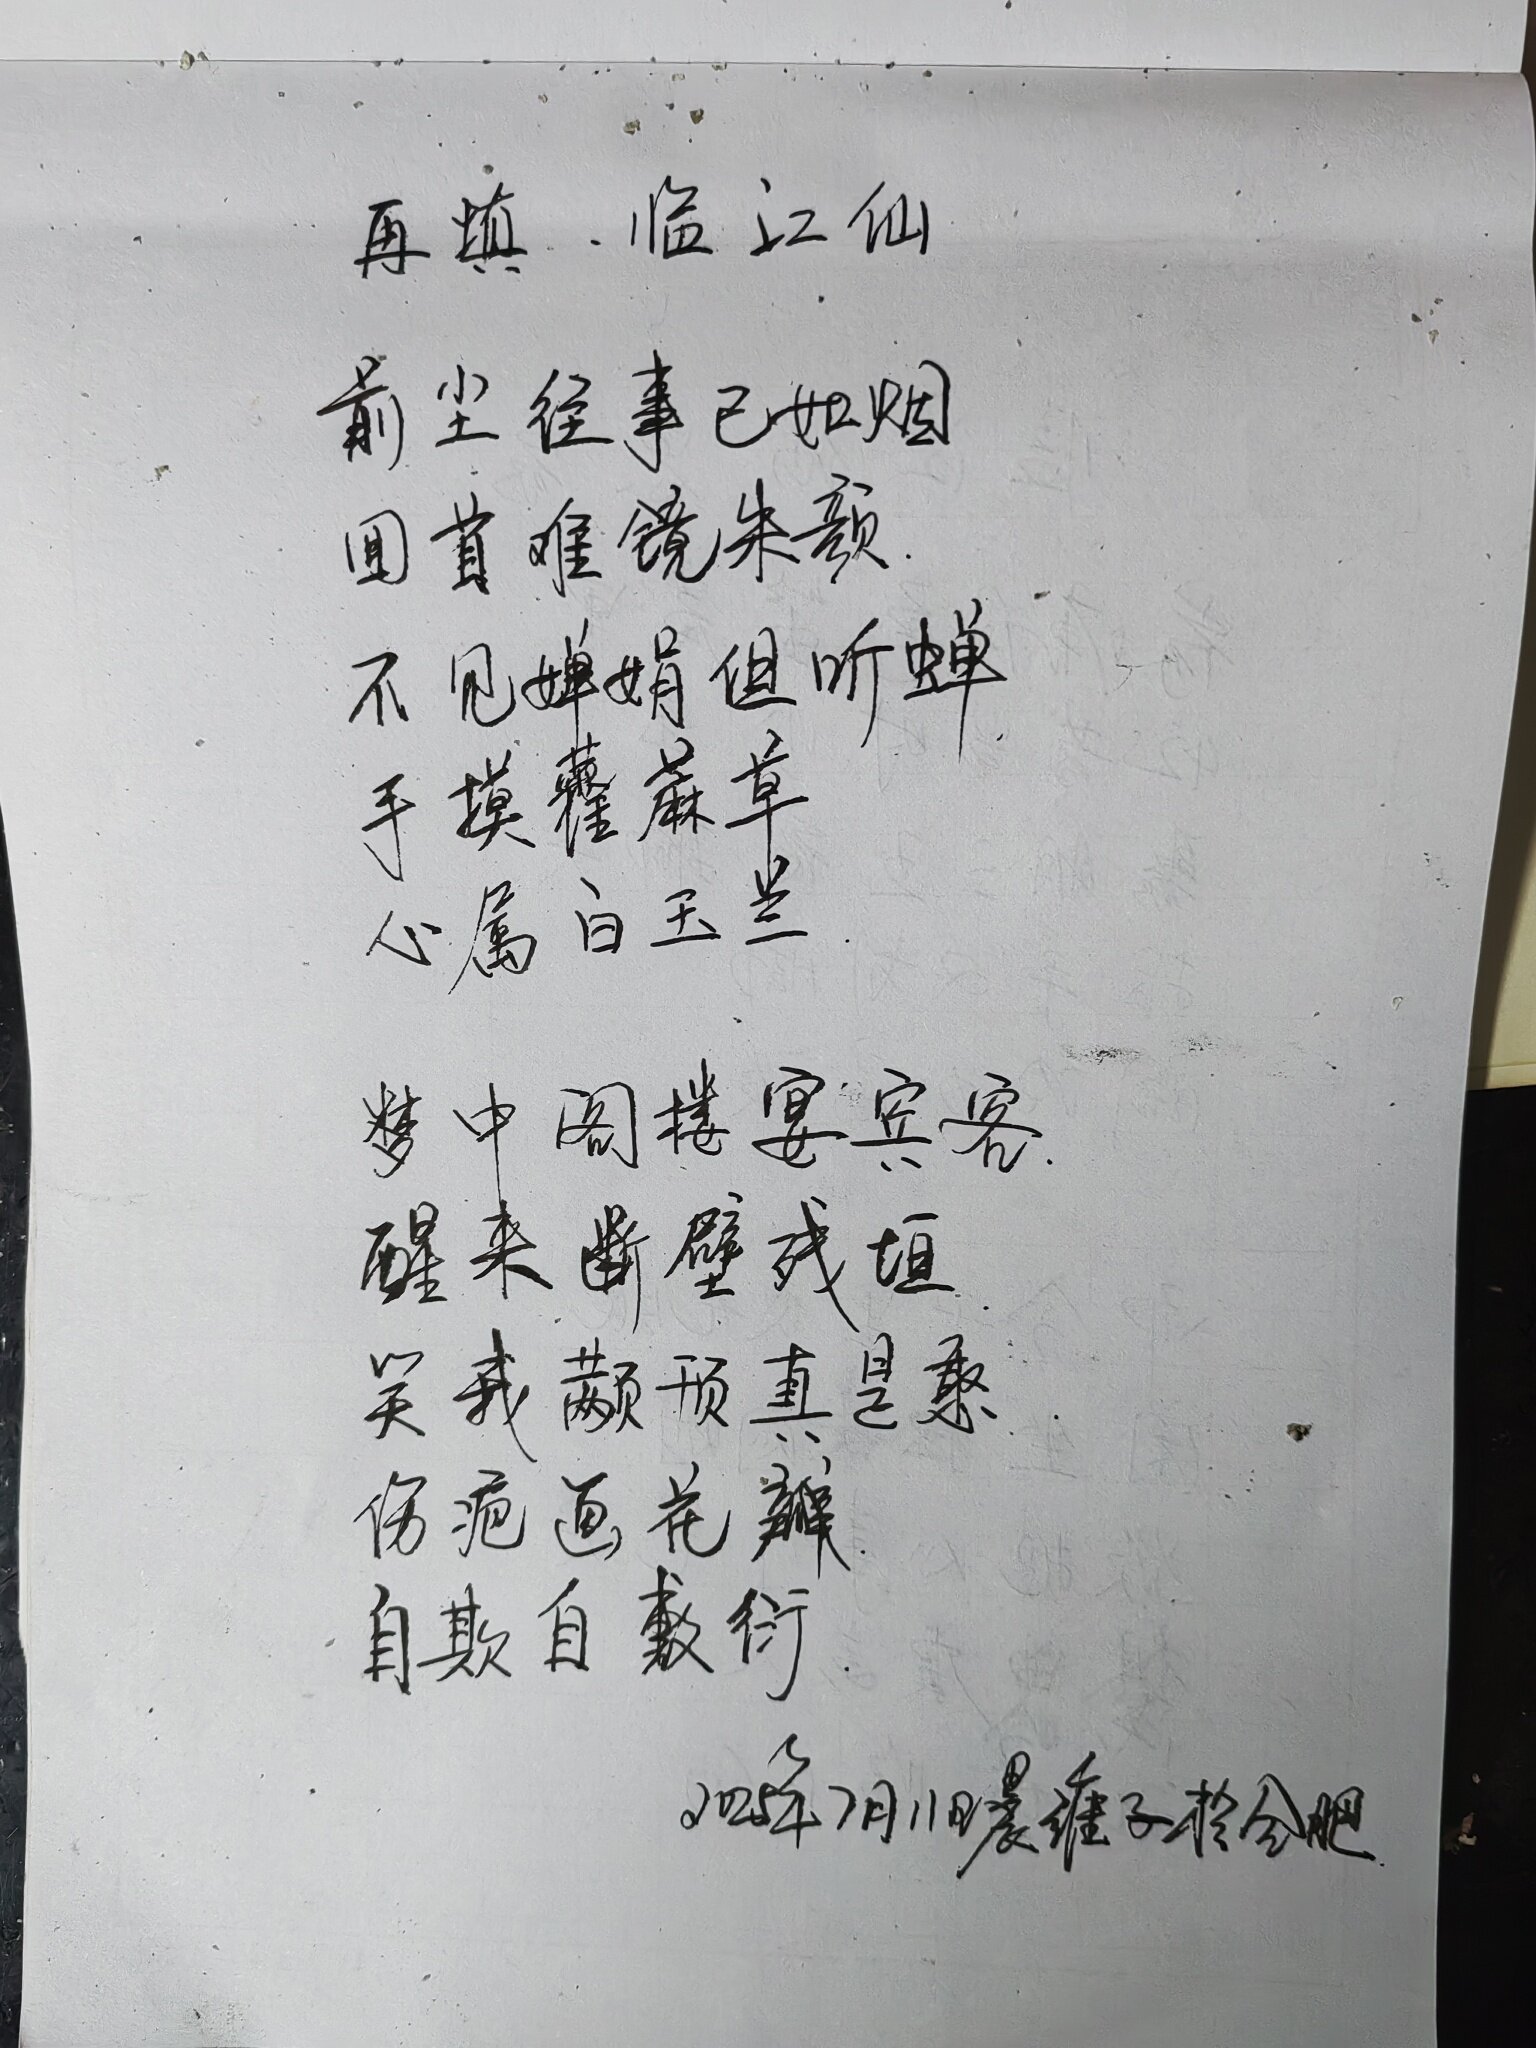 再填·临江仙
前尘往事已如烟
回首难镜朱颜.
不见婵娟但听蝉.
手摸藿蔴草
心属白玉兰.
梦中阁楼宴宾客.
醒来断壁残垣.
笑我颟顸真是憨.
伤疤画花瓣.
自欺自敷衍.
2025年7月11日晨 子於合肥.